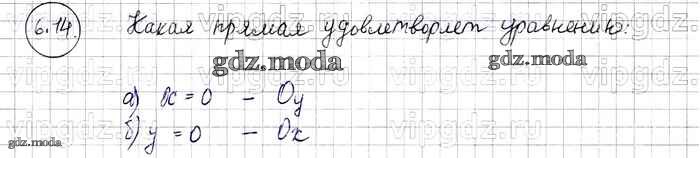 6.14. Какая прямая удовлетворяет уравнению:
gdz.moda
gdz.moda
а) x = 0 - Oy
б) y = 0 - Ox
gdz.moda
vipgdz.ru